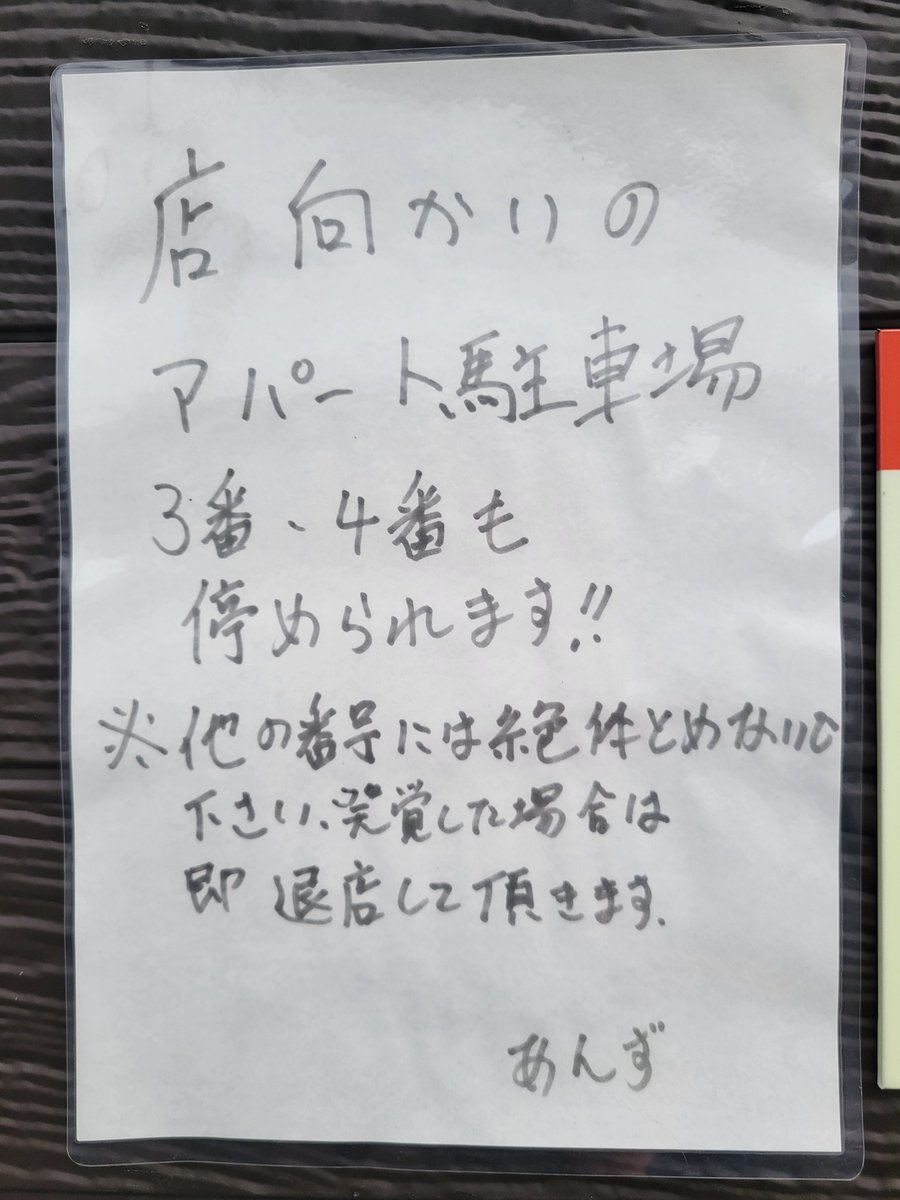 店向かいの
アパート駐車場
3番、4番も
停められます!!
※他の番号には絶体とめないで
下さい、発覚した場合は
即退店して頂きます.
あんず